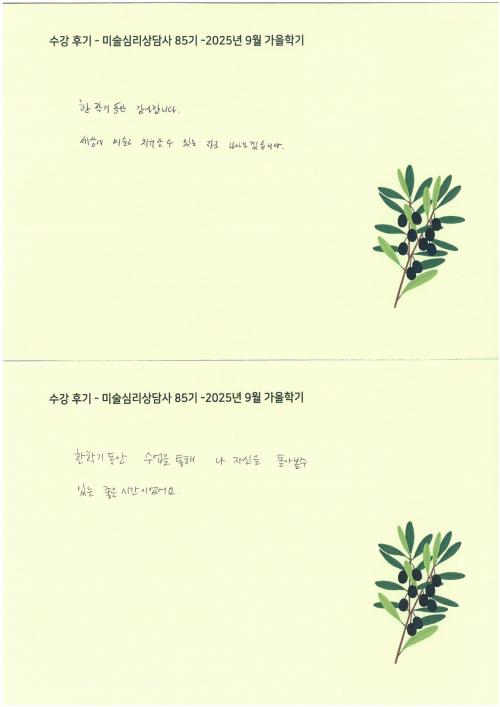 수강 후기 - 미술심리상담사 85기 -2025년 9월 가을학기
한 학기 동안 감사합니다.
세상에 미술로 치유할 수 있는
수강 후기 - 미술심리상담사 85기 -2025년 9월 가을학기
한학기 동안 수업을 통해 나 자신을 돌아볼수
있는 좋은 시간이였어요.